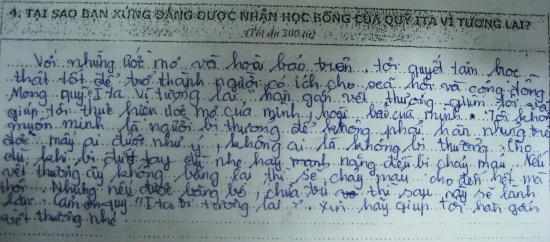 4. TẠI SAO BẠN XỨNG ĐÁNG ĐƯỢC NHẬN HỌC BỔNG CỦA QUỸ ITA VÌ TƯƠNG LAI?
(Tối đa 300 từ)
Với những ước mơ và hoài bão trên, tôi quyết tâm học
thật tốt để trở thành người có ích cho xã hội và cộng đồng
Mong quỹ "Ita vì tương lai" hàn gắn vết thương giúp tôi và
giúp tôi thực hiện ước mơ của mình, hoài bão của mình. Tôi không
muốn mình là người bị thương để không phải hàn nhưng trên
đời mấy ai được như ý, không ai là không bị thương. Cho
dù khi bị đứt tay dù nhẹ hay mạnh nặng đều bị chảy máu. Nếu
vết thương ấy không băng lại thì sẽ chảy máu cho đến hết mà
thôi. Nhưng nếu được băng bó, chữa trị thì sau này sẽ lành
lặn. Cảm ơn quỹ "Ita vì tương lai". Xin hãy giúp tôi hàn gắn
vết thương nhé.